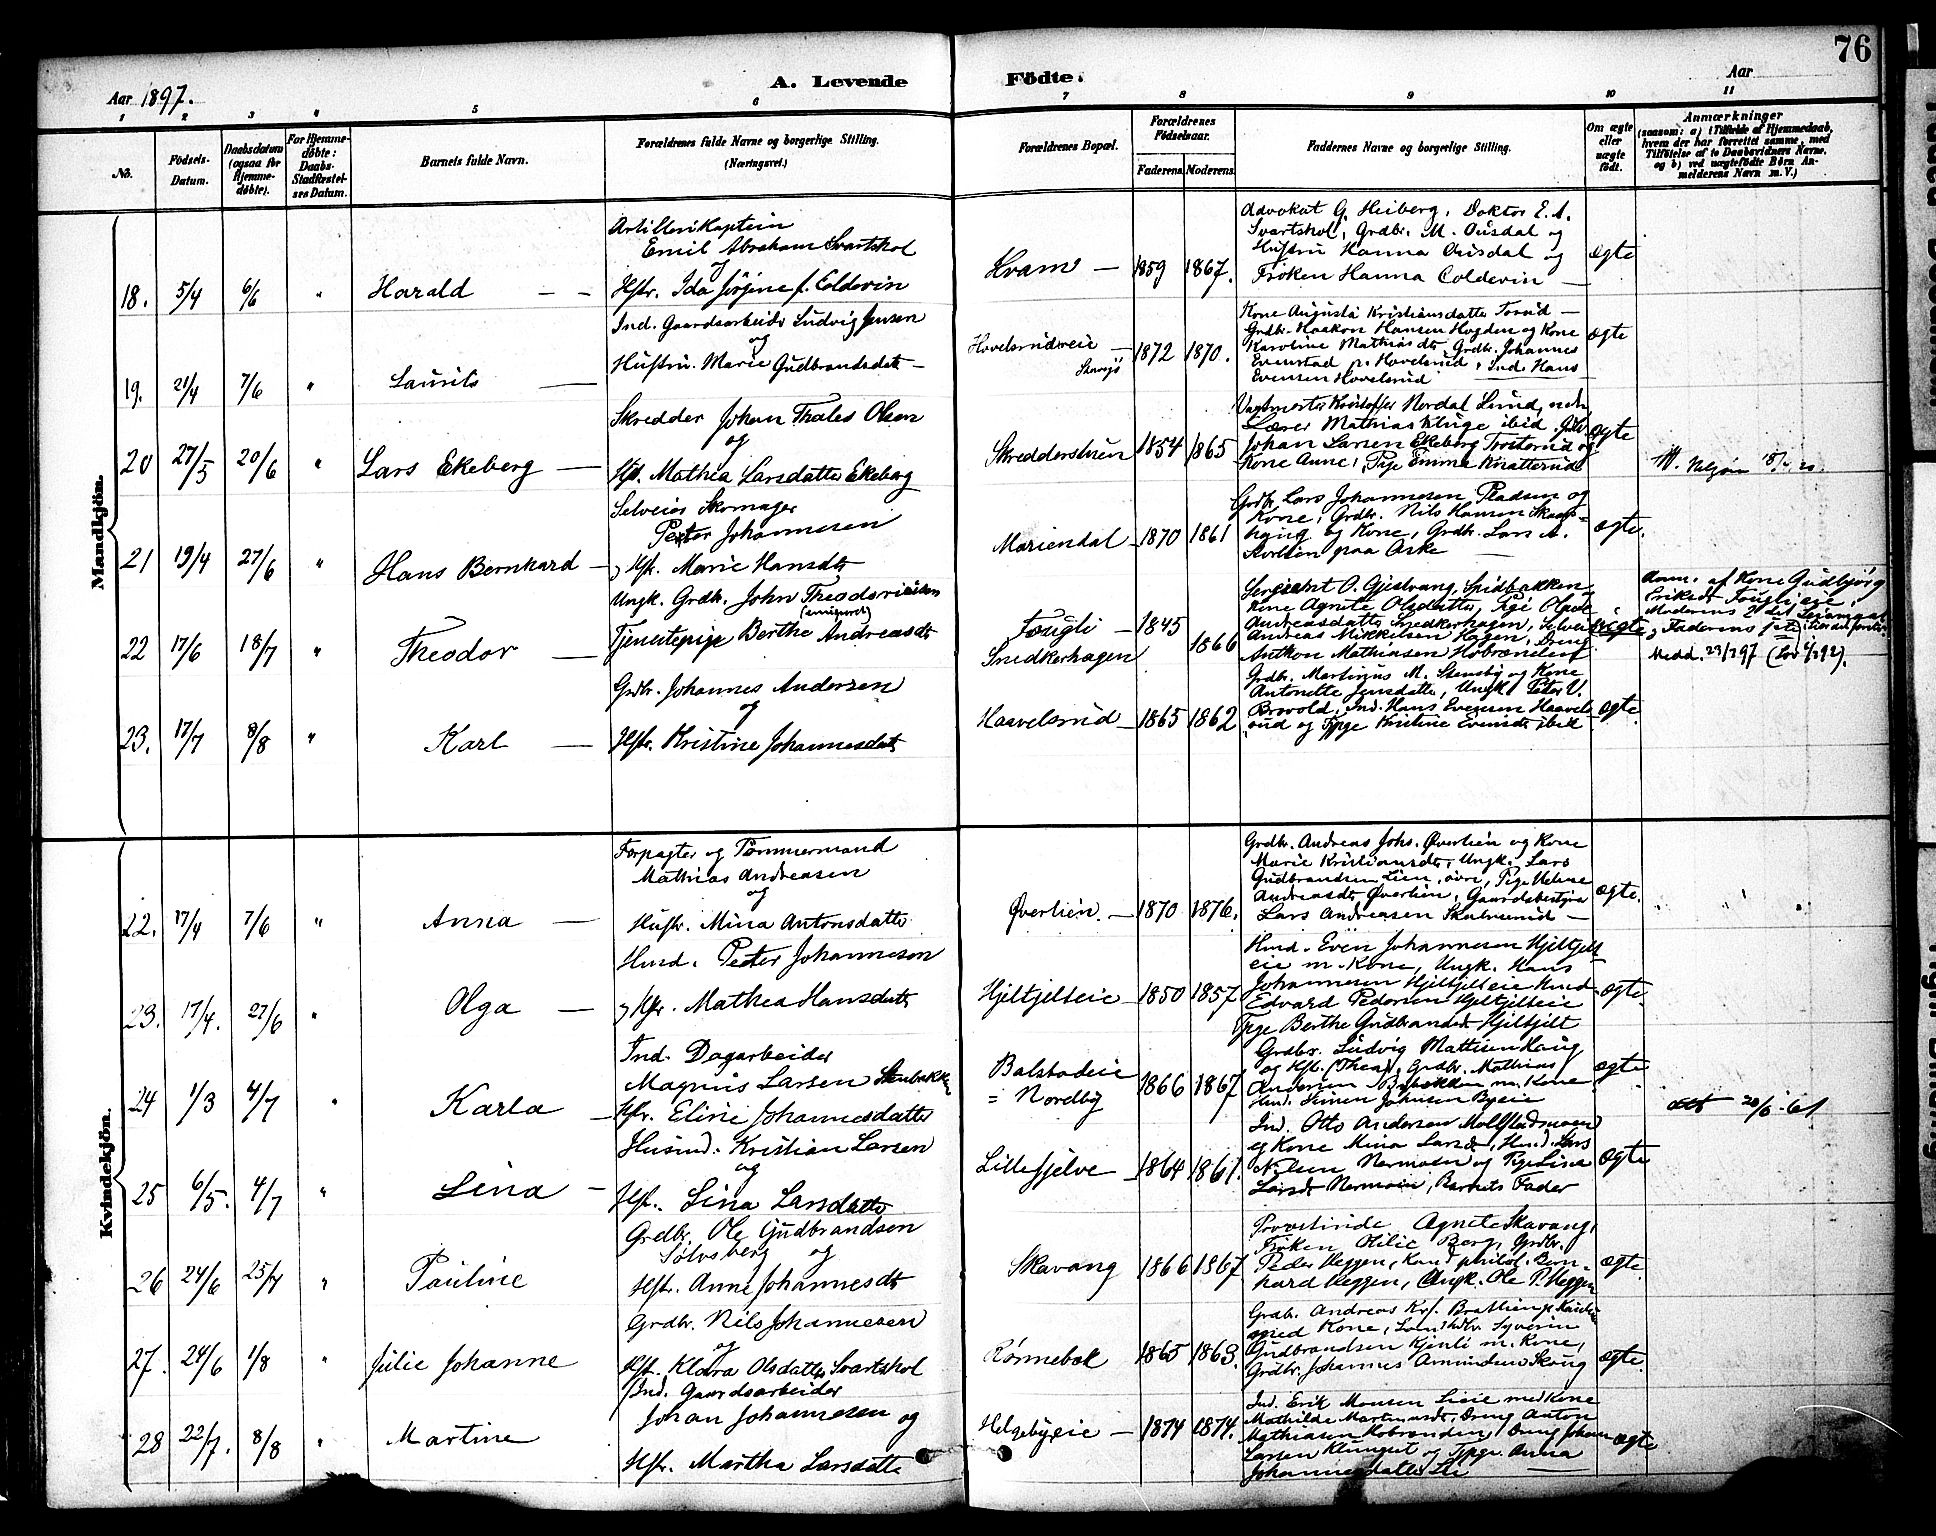 76
Aar 1897.
A. Levende Födte.
Aar
1 2 3 4 5 6 7 8 9 10 11
No.
Födsels-Datum.
Daabsdatum (ogsaa for Hjemmedöbte).
For Hjemmedöbte: Daabs-Stadfæstelses Datum.
Barnets fulde Navn.
Forældrenes fulde Navne og borgerlige Stilling. (Næringsvei.)
Forældrenes Bopæl.
Forældrenes Födselsaar.
Faderens Moderens
Faddernes Navne og borgerlige Stilling.
Om ægte eller uægte födt.
Anmærkninger
(saasom: a) i Tilfælde af Hjemmedaab, hvem der har forrettet samme, med Tilföielse af to Daabsvidners Navne, og b) ved uægtefödte Börn Anmelderens Navn m. V.)
Mandkjön.
18. 5/4 6/6 " Harald
Artillerikaptein
Emil Abraham Svartshol
og
Hstr. Ida Jörgine f. Coldevin
Hvam 1859 1867.
Advokat G. Heiberg, Doktor E. A.
Svartshol, Grdbr. M. Ousdal og
Hustru Hanna Ousdal og
Fröken Hanna Coldevin
ægte
19. 21/4 7/6 " Laurits
Ind. Gaardsarbeider Ludvig Jensen
og
Hustru Marie Gudbrandsdatr
Hovelsrudeie 1872 1870.
Kone Augusta Kristiansdatter
Grdbr. Haakon Hansen Hogden og Kone
Karoline Mathiasdtr, Grdbr. Johannes
Evenstad p. Hovelsrud, Ind. Hans
Evensen Hovelsrud
ægte
20 27/5 20/6 " Lars Ekeberg
Skredder Johan Thales Olsen
og
Hst. Mathea Larsdatter Ekeberg
Skredderstuen 1854 1865
Vagtmester Kristoffer Nordal Lund,
Lærer Mathias Kluge ibid.
Johan Larsen Ekeberg, og
Kone Anne, Pige Emma Knatterud
ægte
21 19/4 27/6 " Hans Bernhard
Selveier Skomager
Petter Johannesen
og Hst. Marie Hansdtr
Mariendal 1870 1861
Grdbr. Lars Johannesen Pladsen og
Kone, Grdbr. Nils Hansen
og Kone, Grdbr. Lars A.
paa Aske
ægte.
22 17/6 18/7 " Theodor
Ungk. Grdbr. John Theodor
(emigreret)
Tjenestepige Berthe Andreasdtr
Fougli 1845
Snedkerhagen 1866
Sergeant O. Gjestvang,
Kone Agnete Olsdatter, Pige
Andreasdatter Snedkerhagen,
Andreas Mikkelsen Hagen, Dreng
Anthon Mathiasen
uægte
Anm. af Kone Gudbjörg
Moderens 2det
Faderens 1ste
Medd. 23/7 97
23. 17/7 8/8 " Karl
Grdbr. Johannes Andersen
og
Hstr. Kristine Johannesdatr
Haavelsrud 1865 1862
Grdbr. Martinius M. Stensby og Kone
Antonette Jensdatter, Ungk. Peter
Brovold, Ind. Hans Evensen Haavelsrud
og Tjpge Kristine Evensdtr ibid
ægte.
Kvindekjön.
22. 17/4 7/6 " Anna
Forpagter og Tömmermand
Mathias Andreasen
og
Hustr. Mina Antonsdatter
Överlien. 1870 1876.
Grdbr. Andreas Johs. Överlien og Kone
Marie Kristiansdtr, Ungk. Lars
Gudbrandsen Lien, övre, Pige Helene
Andreasdtr Överlien, Gaardsbestyrer
Lars Andreasen
ægte.
23. 17/4. 27/6 " Olga
Hmd. Petter Johannesen
og Hstr. Mathea Hansdatr
Hjeltjelteie 1850 1857
Hmd. Even Johannesen Hjeltjelteie
m. Kone, Ungk. Hans
Johannesen Hjeltjelteie
Edvard Pedersen Hjeltjelteie
Tjpge Berthe Gudbrandsdtr Hjeltjelt
ægte.
24 1/3 4/7 " Karla
Ind. Dagarbeider
Magnus Larsen Stenbakken
Hstr. Eline Johannesdatter
Balstadeie 1866 1867
= Nordby
Grdbr. Ludvig Mathisen Haug
og Hst. Thea, Grdbr. Mathias
Andersen m. Kone
Hmd. Simen Johnsen Byeie
ægte.
25 6/5. 4/7 " Lina
Husmd. Kristian Larsen
og
Hst. Lina Larsdatter
Lillesjelve 1864 1861.
Ind. Otto Andersen
og Kone Mina Larsdtr, Hmd. Lars
Nilsen Nermoen og Pige Lina
Larsdtr Nermoen, Barnets Fader
ægte
26 24/6 25/7 " Pauline
Grdbr. Ole Gudbrandsen
Sölvsberg og
Hstr. Anne Johannesdtr
Skavang 1866 1867
Agnete Skavang,
Fröken Otilie Berg, Grdbr.
Peder Heggen, Kand. philol. Bernhard
Heggen, Ungk. Ole P. Heggen
ægte.
27. 24/6 1/8 " Julie Johanne
Grdbr. Nils Johannesen
og
Hst. Klara Olsdatter Svartshol
Rönnebæk 1865 1863.
Grdbr. Andreas
med Kone, Syverin
Gudbrandsen Kjenli m. Kone,
Grdbr. Johannes Amundsen Skoug
ægte.
28 22/7. 8/8 " Martine
Ind. Gaardsarbeider
Johan Johannesen og
Hstr. Martha Larsdatter
Helgebyeie 1874 1874.
Ind. Erik Monsen Lieie med Kone
Mathilde Dreng Anton
Mathiasen
Larsen og Tjpge. Anna
Johannesdatter Lie
ægte